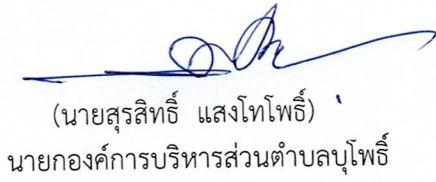 (นายสุรสิทธิ์ แสงโทโพธิ์)
นายกองค์การบริหารส่วนตำบลบุโพธิ์